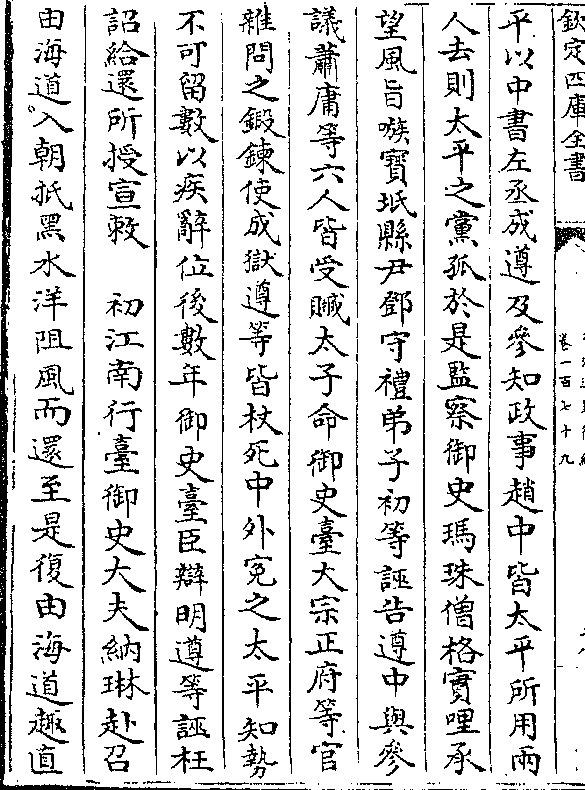 欽定四庫全書
卷一百七十九
平以中書左丞成遵及參知政事趙中皆太平所用兩
人去則太平之黨孤於是監察御史瑪珠僧格實哩承
望風旨嗾寶坻縣尹鄧守禮弟子初等誣告遵中與參
議蕭庸等六人皆受贓太子命御史臺大宗正府等官
雜問之鍛鍊使成獄遵等皆杖死中外寃之太平知勢
不可留數以疾辭位後數年御史臺臣辯明遵等誣枉
詔給還所授宣敕　初江南行臺御史大夫納琳赴召
由海道入朝抵黑水洋阻風而還至是復由海道趣直